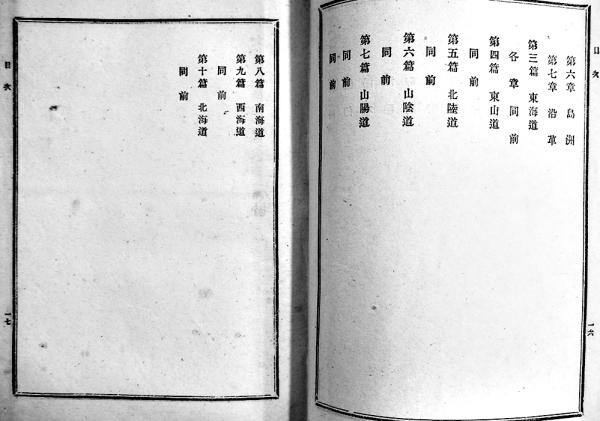 目次
第六章 島洲
第七章 沿革
第三篇 東海道
各章同前
第四篇 東山道
同前
第五篇 北陸道
同前
第六篇 山陰道
同前
第七篇 山陽道
同前
同前
一六
第八篇 南海道
第九篇 西海道
同前
第十篇 北海道
同前
目次
一七